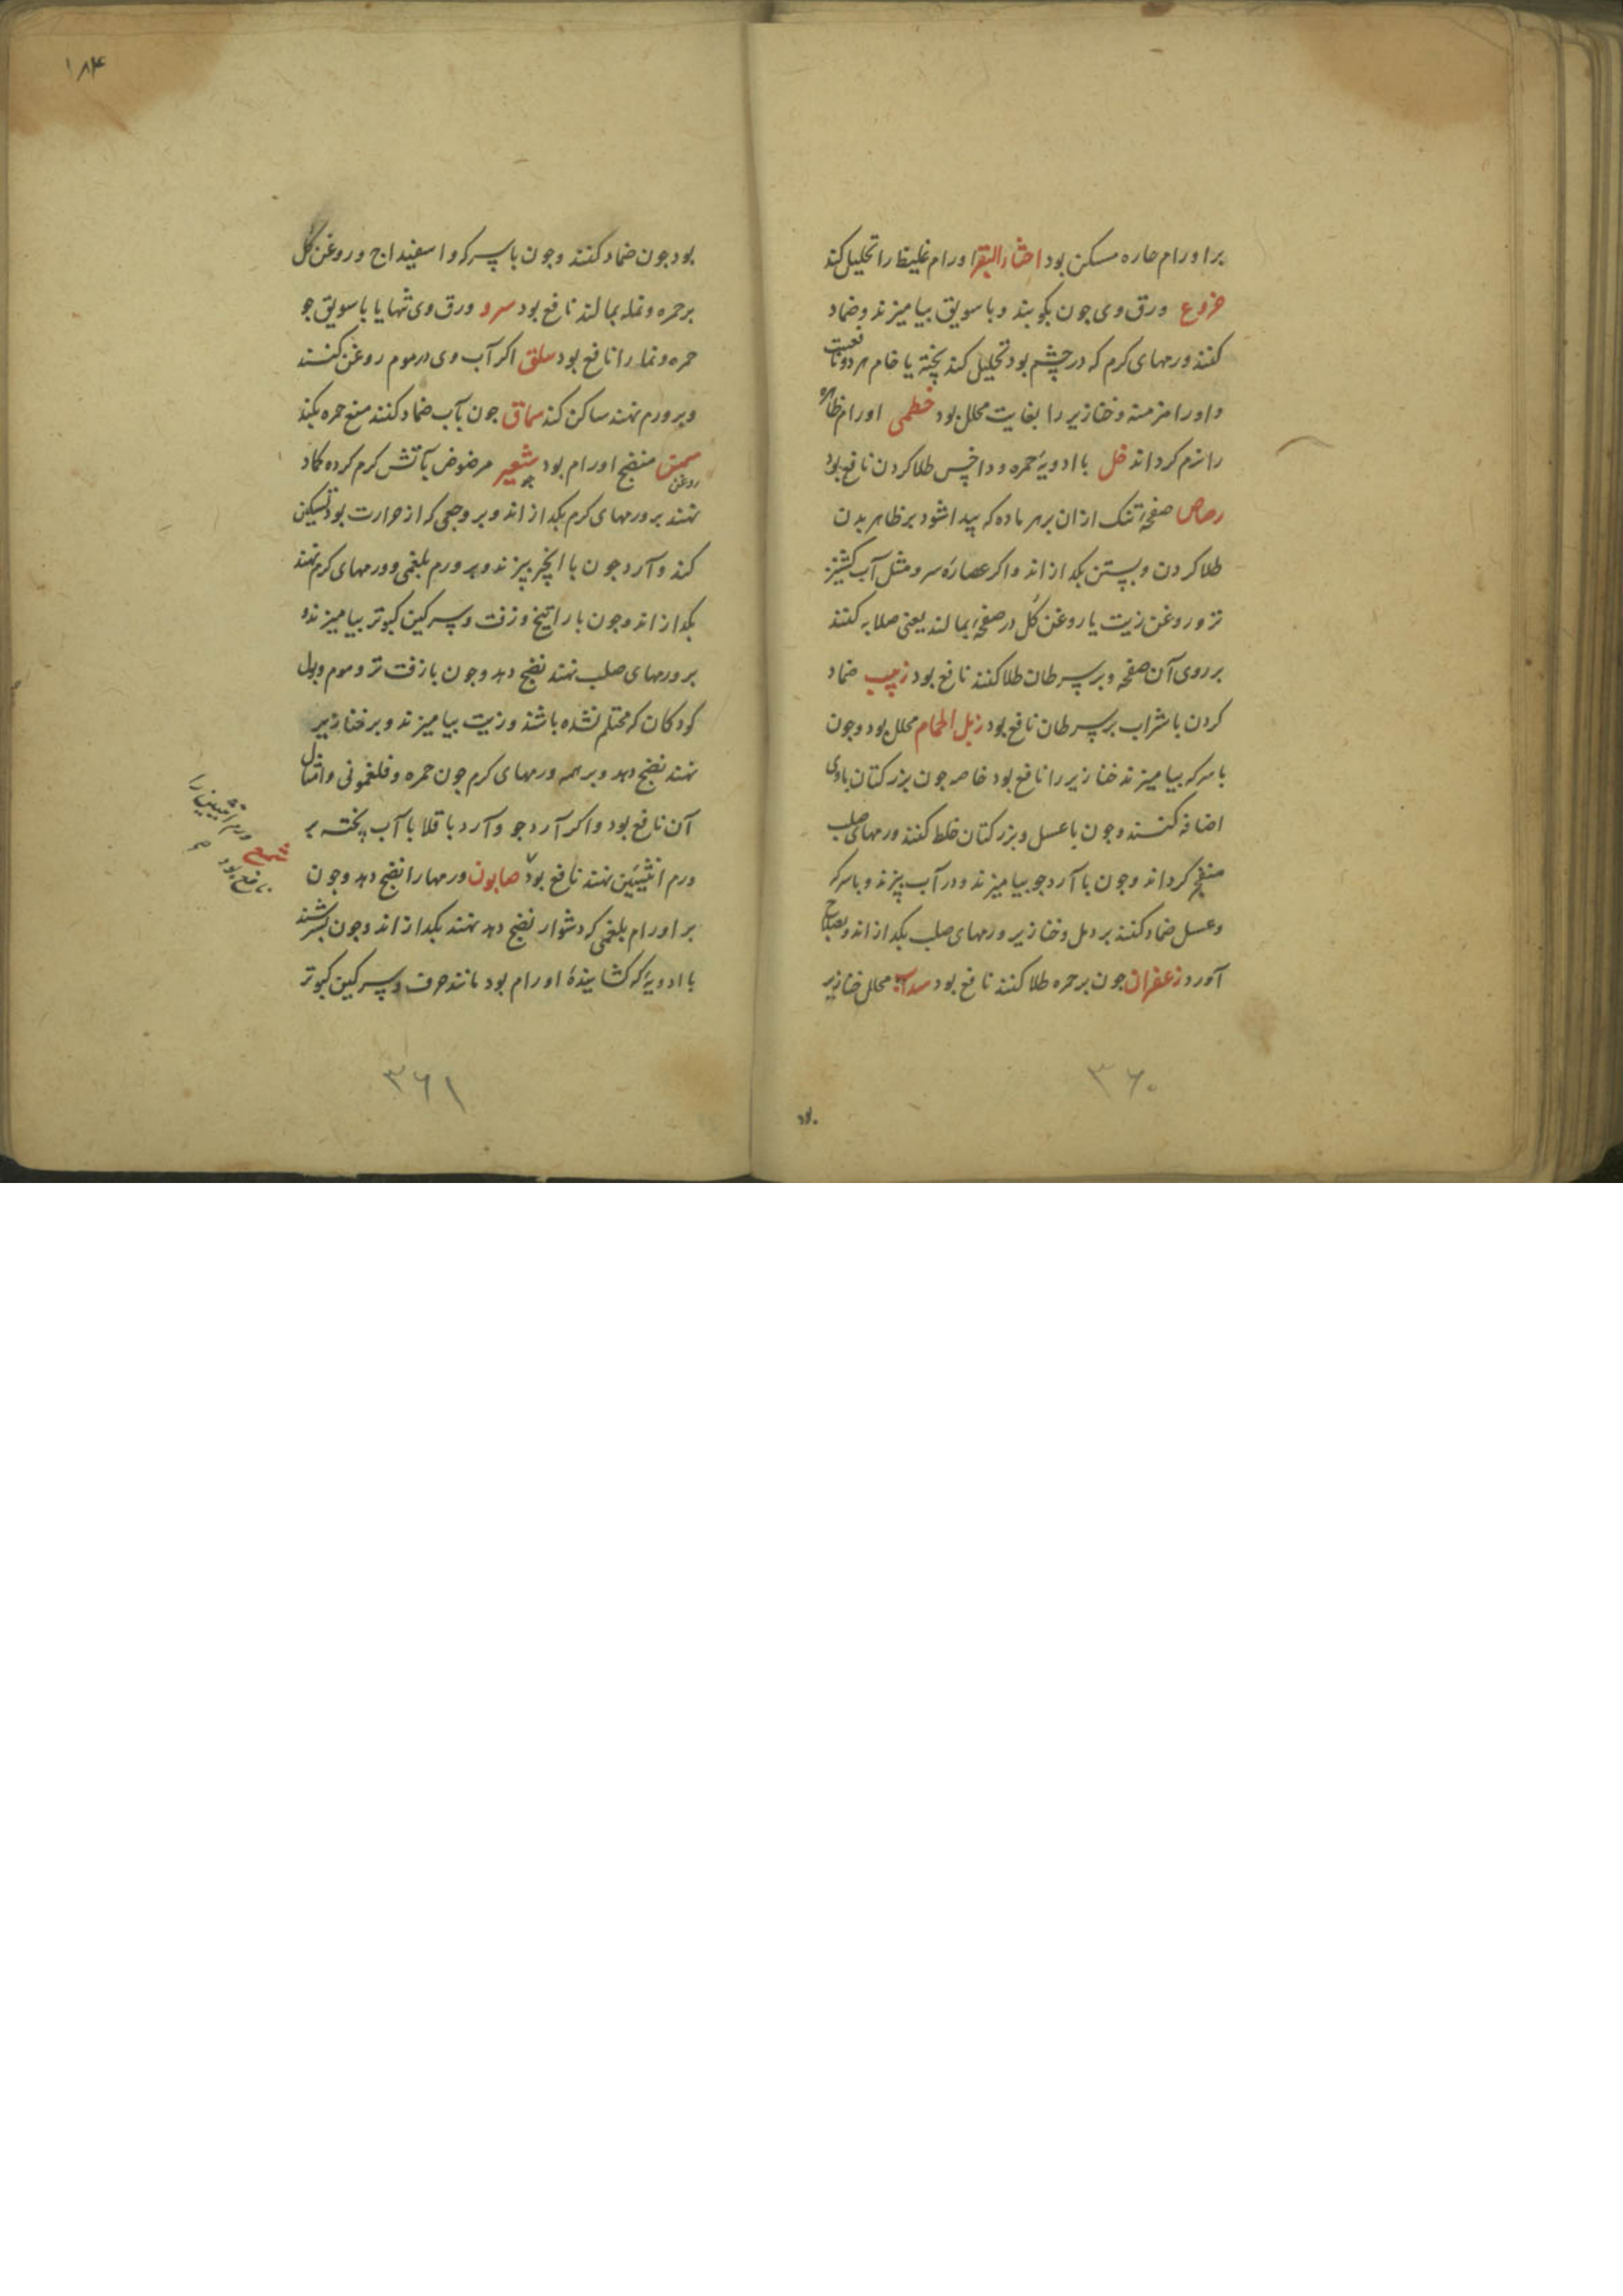 بر اورام حاره مسکن بود اخثاء البقر اورام غلیظ را تحلیل کند
خروع ورق وی جون بکوبند و با سویق بیامیزند و ضماد
کنند ورمهای کرم که در چشم بود تحلیل کند پخته یا خام هر دو
و اورام مزمنه و خنازیر را بغایت محلل بود خطمی اورام ظاهر
را نرم کرداند خل با ادویهٔ حمره و داخس طلا کردن نافع بود
رصاص صفحهٔ تنک ازان بر هر ماده که پیدا شود بر ظاهر بدن
طلا کردن و بستن بکدازاند و اکر عصارهٔ سرو مثل آب کشنیز
تر و روغن زیت یا روغن کل در صفحهٔ بمالند یعنی صلایه کنند
بر روی آن صفحه و بر سرطان طلا کنند نافع بود زبیب ضماد
کردن با شراب بر سرطان نافع بود زبل الحمام محلل بود وجون
با سرکه بیامیزند خنازیر را نافع بود خاصه جون بزر کتان باوی
اضافه کنند وجون با عسل و بزر کتان خلط کنند ورمهای صلب
منضج کرداند وجون با آرد جو بیامیزند و در آب پزند و با سرکه
و عسل ضماد کنند بر دمل و خنازیر ورمهای صلب بکدازاند و بصلاح
آورد زعفران جون بر حمره طلا کنند نافع بود سداب محلل خنازیر
۳۶۰
۱۸۴
بود جون ضماد کنند وجون با سرکه و اسفیداج و روغن کل
بر حمره و نمله بمالند نافع بود سرو ورق وی تنها یا با سویق جو
حمره و نمله را نافع بود سلق اکر آب وی در موم روغن کنند
و بر ورم نهند ساکن کند سماق جون بآب ضماد کنند منع حمره بکند
سمن منضج اورام بود شعیر مرضوض بآتش کرم کرده کماد
روغن
جو
نهند بر ورمهای کرم بکدازاند و بر وجعی که از حرارت بود تسکین
کند و آرد جون با انجیر بپزند و بر ورم بلغمی و ورمهای کرم نهند
بکدازاند وجون با راتینج و زفت و سرکین کبوتر بیامیزند و
بر ورمهای صلب نهند نضج دهد وجون با زفت تر و موم و بول
کودکان که محتلم نشده باشند و زیت بیامیزند و بر خنازیر
نهند نضج دهد و بر همه ورمهای کرم جون حمره و فلغمونی و امثال
آن نافع بود و اکر آرد جو و آرد باقلا با آب پخته بر
ورم انثیین نهند نافع بود صابون ورمها را نضج دهد وجون
بر اورام بلغمی که دشوار نضج دهد نهند بکدازاند وجون بسرشند
با ادویهٔ که کشایندهٔ اورام بود مانند حرف و سرکین کبوتر
ورم انثیین را
نافع بود
۳۶۱